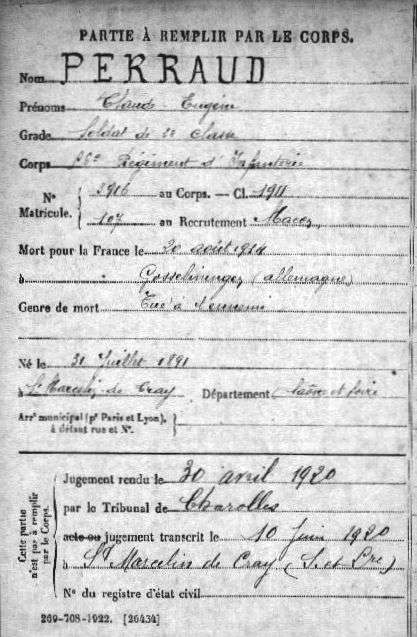 PARTIE À REMPLIR PAR LE CORPS.
Nom PERRAUD
Prénoms Claude Eugène
Grade Soldat de 2e classe
Corps Régiment d'Infanterie
N° Matricule. { 5916 au Corps. — Cl. 1911
107 au Recrutement Macon
Mort pour la France le 20 août 1914
à Gosselminger (allemagne)
Genre de mort Tué à l'ennemi
Né le 31 Juillet 1891
à St Marcelin de Cray Département Saône et Loire
Arrt municipal (pr Paris et Lyon), à défaut rue et N°. }
Cette partie n'est pas à remplir par le Corps.
Jugement rendu le 30 avril 1920
par le Tribunal de Charolles
acte ou jugement transcrit le 10 Juin 1920
à St Marcelin de Cray (S. et Lre)
N° du registre d'état civil
269-708-1922. [26434]